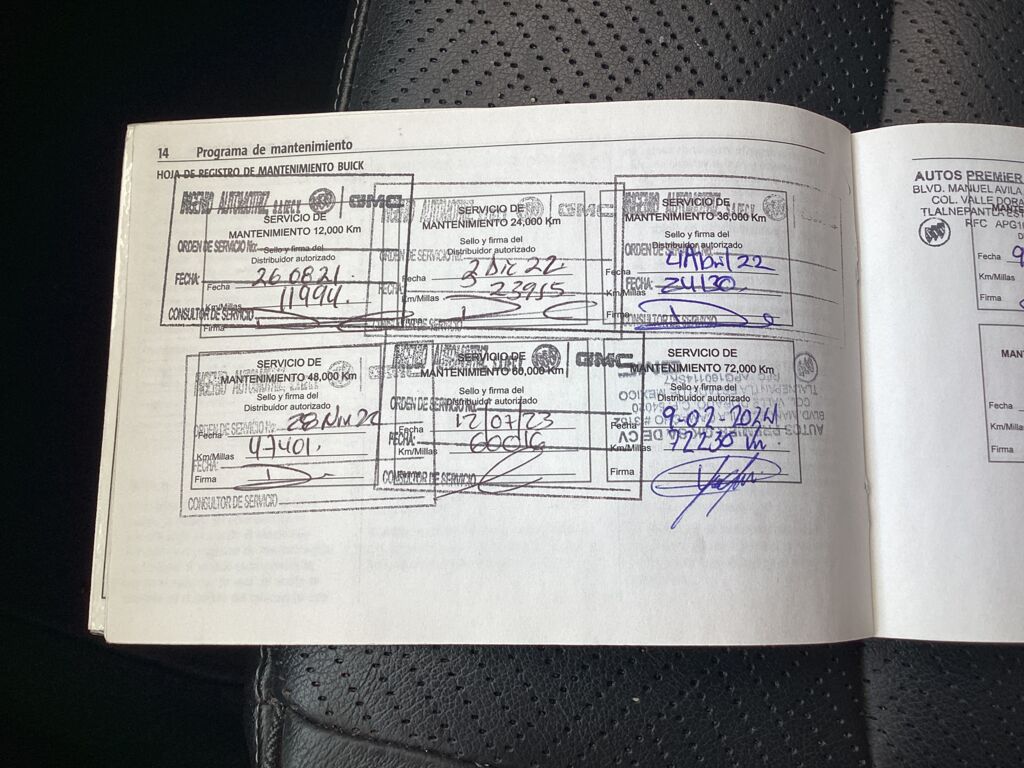 14 Programa de mantenimiento
HOJA DE REGISTRO DE MANTENIMIENTO BUICK
INGENIO AUTOMOTRIZ, S.A. DE C.V. GMC
SERVICIO DE
MANTENIMIENTO 12,000 Km
ORDEN DE SERVICIO No.
Sello y firma del
Distribuidor autorizado
FECHA: 26 08 21
Km/Millas 11994.
CONSULTOR DE SERVICIO
Firma
GMC
SERVICIO DE
MANTENIMIENTO 24,000 Km
Sello y firma del
Distribuidor autorizado
Fecha
Km/Millas
SERVICIO DE
MANTENIMIENTO 36,000 Km
ORDEN DE SERVICIO No.
Sello y firma del
Distribuidor autorizado
Fecha
FECHA:
Km/Millas
Firma
CONSULTOR DE SERVICIO
SERVICIO DE
MANTENIMIENTO 48,000 Km
Sello y firma del
Distribuidor autorizado
ORDEN DE SERVICIO No.
Fecha
Km/Millas 47401.
FECHA:
Firma
CONSULTOR DE SERVICIO
GMC
SERVICIO DE
MANTENIMIENTO 60,000 Km
Sello y firma del
Distribuidor autorizado
ORDEN DE SERVICIO No.
Fecha 12/07/23
FECHA:
Km/Millas 60016
CONSULTOR DE SERVICIO
SERVICIO DE
MANTENIMIENTO 72,000 Km
Sello y firma del
Distribuidor autorizado
Fecha 9-02-2024
Km/Millas 72230
Firma
AUTOS PREMIER
BLVD. MANUEL AVILA
COL. VALLE DORA
TLALNEPANTLA
RFC APG1
Fecha
Km/Millas
Firma
MAN
Fecha
Km/Millas
Firma